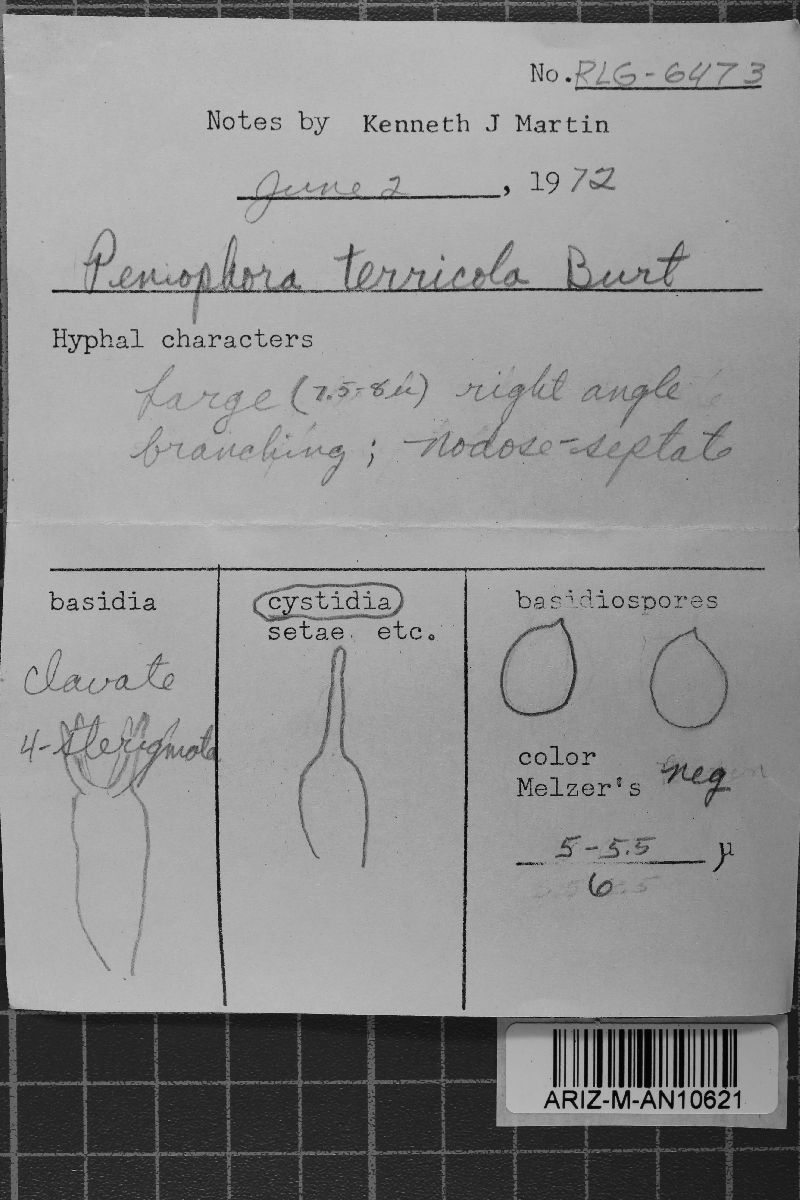 No. RLG-6473
Notes by Kenneth J Martin
June 2, 1972
Peniophora terricola Burt
Hyphal characters
Large (7.5-8µ) right angle
branching; nodose-septate
basidia
clavate
4-sterigmata
cystidia
setae. etc.
basidiospores
color
Melzer's neg
5-5.5 µ
6
ARIZ-M-AN10621